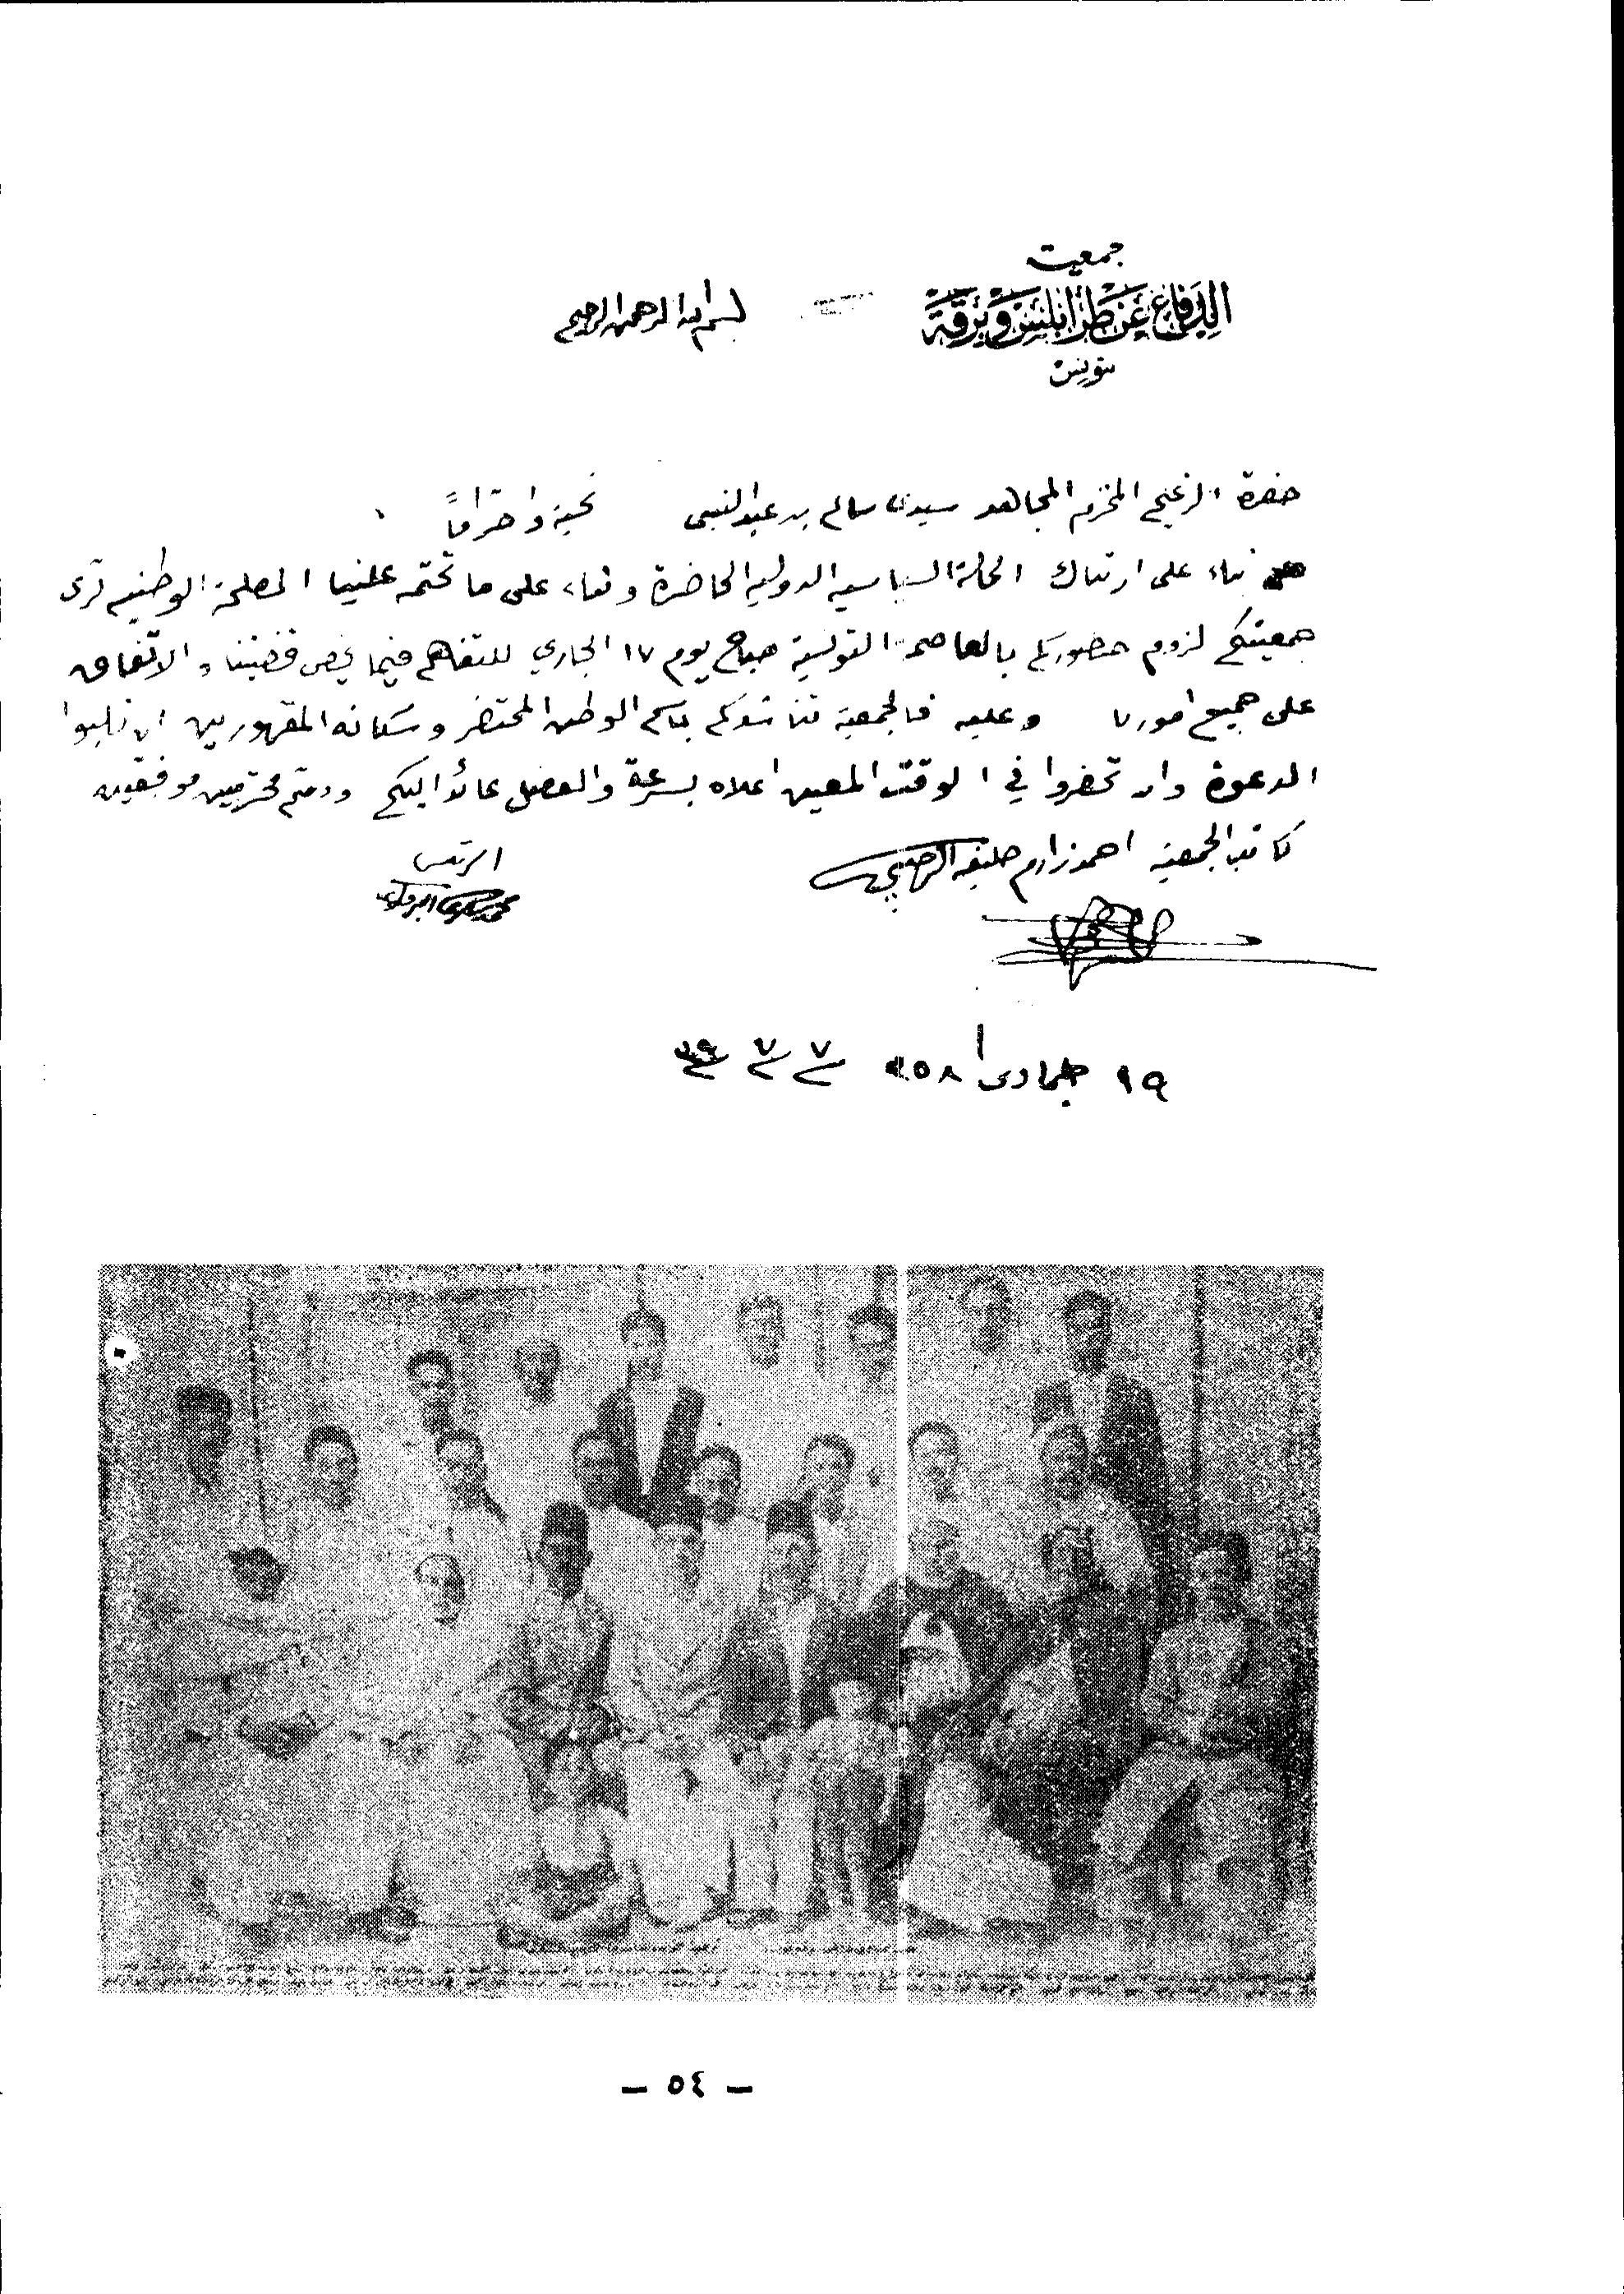 جمعية
الدفاع عن طرابلس وبرقة
بتونس
بسم الله الرحمن الرحيم
حضرة الزعيم المحترم المجاهد سيدي سالم بن عبد النبي تحية واحتراماً
بناء على ارتباك الحالة السياسية الدولية الحاضرة وبناء على ما تحتمه علينا المصلحة الوطنية ترى
جمعيتكم لزوم حضوركم بالعاصمة التونسية صباح يوم ١٧ الجاري للتفاهم فيما يخص قضيتنا والاتفاق
على جميع امورنا وعليه فالجمعية تناشدكم باسم الوطن المحتضر وسكانه المقهورين ان تلبوا
الدعوة وان تحضروا في الوقت المعين اعلاه بسرعة والفضل عائد اليكم ودمتم محترمين موفقين
كاتب الجمعية احمد زارم
الرئيس
١٩ جمادى ١
٧ ٧ ٣٩
— ٥٤ —